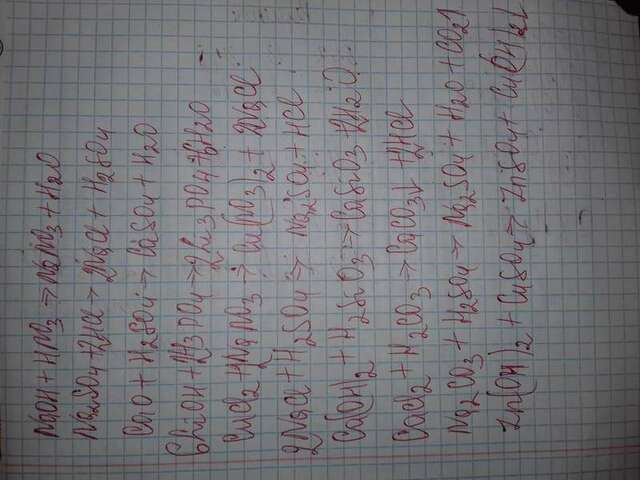 NaOH + HNO3 → NaNO3 + H2O
Na2SO4 + 2HCl → 2NaCl + H2SO4
CaO + H2SO4 → CaSO4 + H2O
6LiOH + 2H3PO4 → 2Li3PO4 + 6H2O
CuCl2 + 2NaNO3 → Cu(NO3)2 + 2NaCl
2NaCl + H2SO4 → Na2SO4 + HCl
Ca(OH)2 + H2SiO3 → CaSiO3 + 2H2O
CaCl2 + H2CO3 → CaCO3↓ + 2HCl
Na2CO3 + H2SO4 → Na2SO4 + H2O + CO2↑
Zn(OH)2 + CuSO4 → ZnSO4 + Cu(OH)2↓